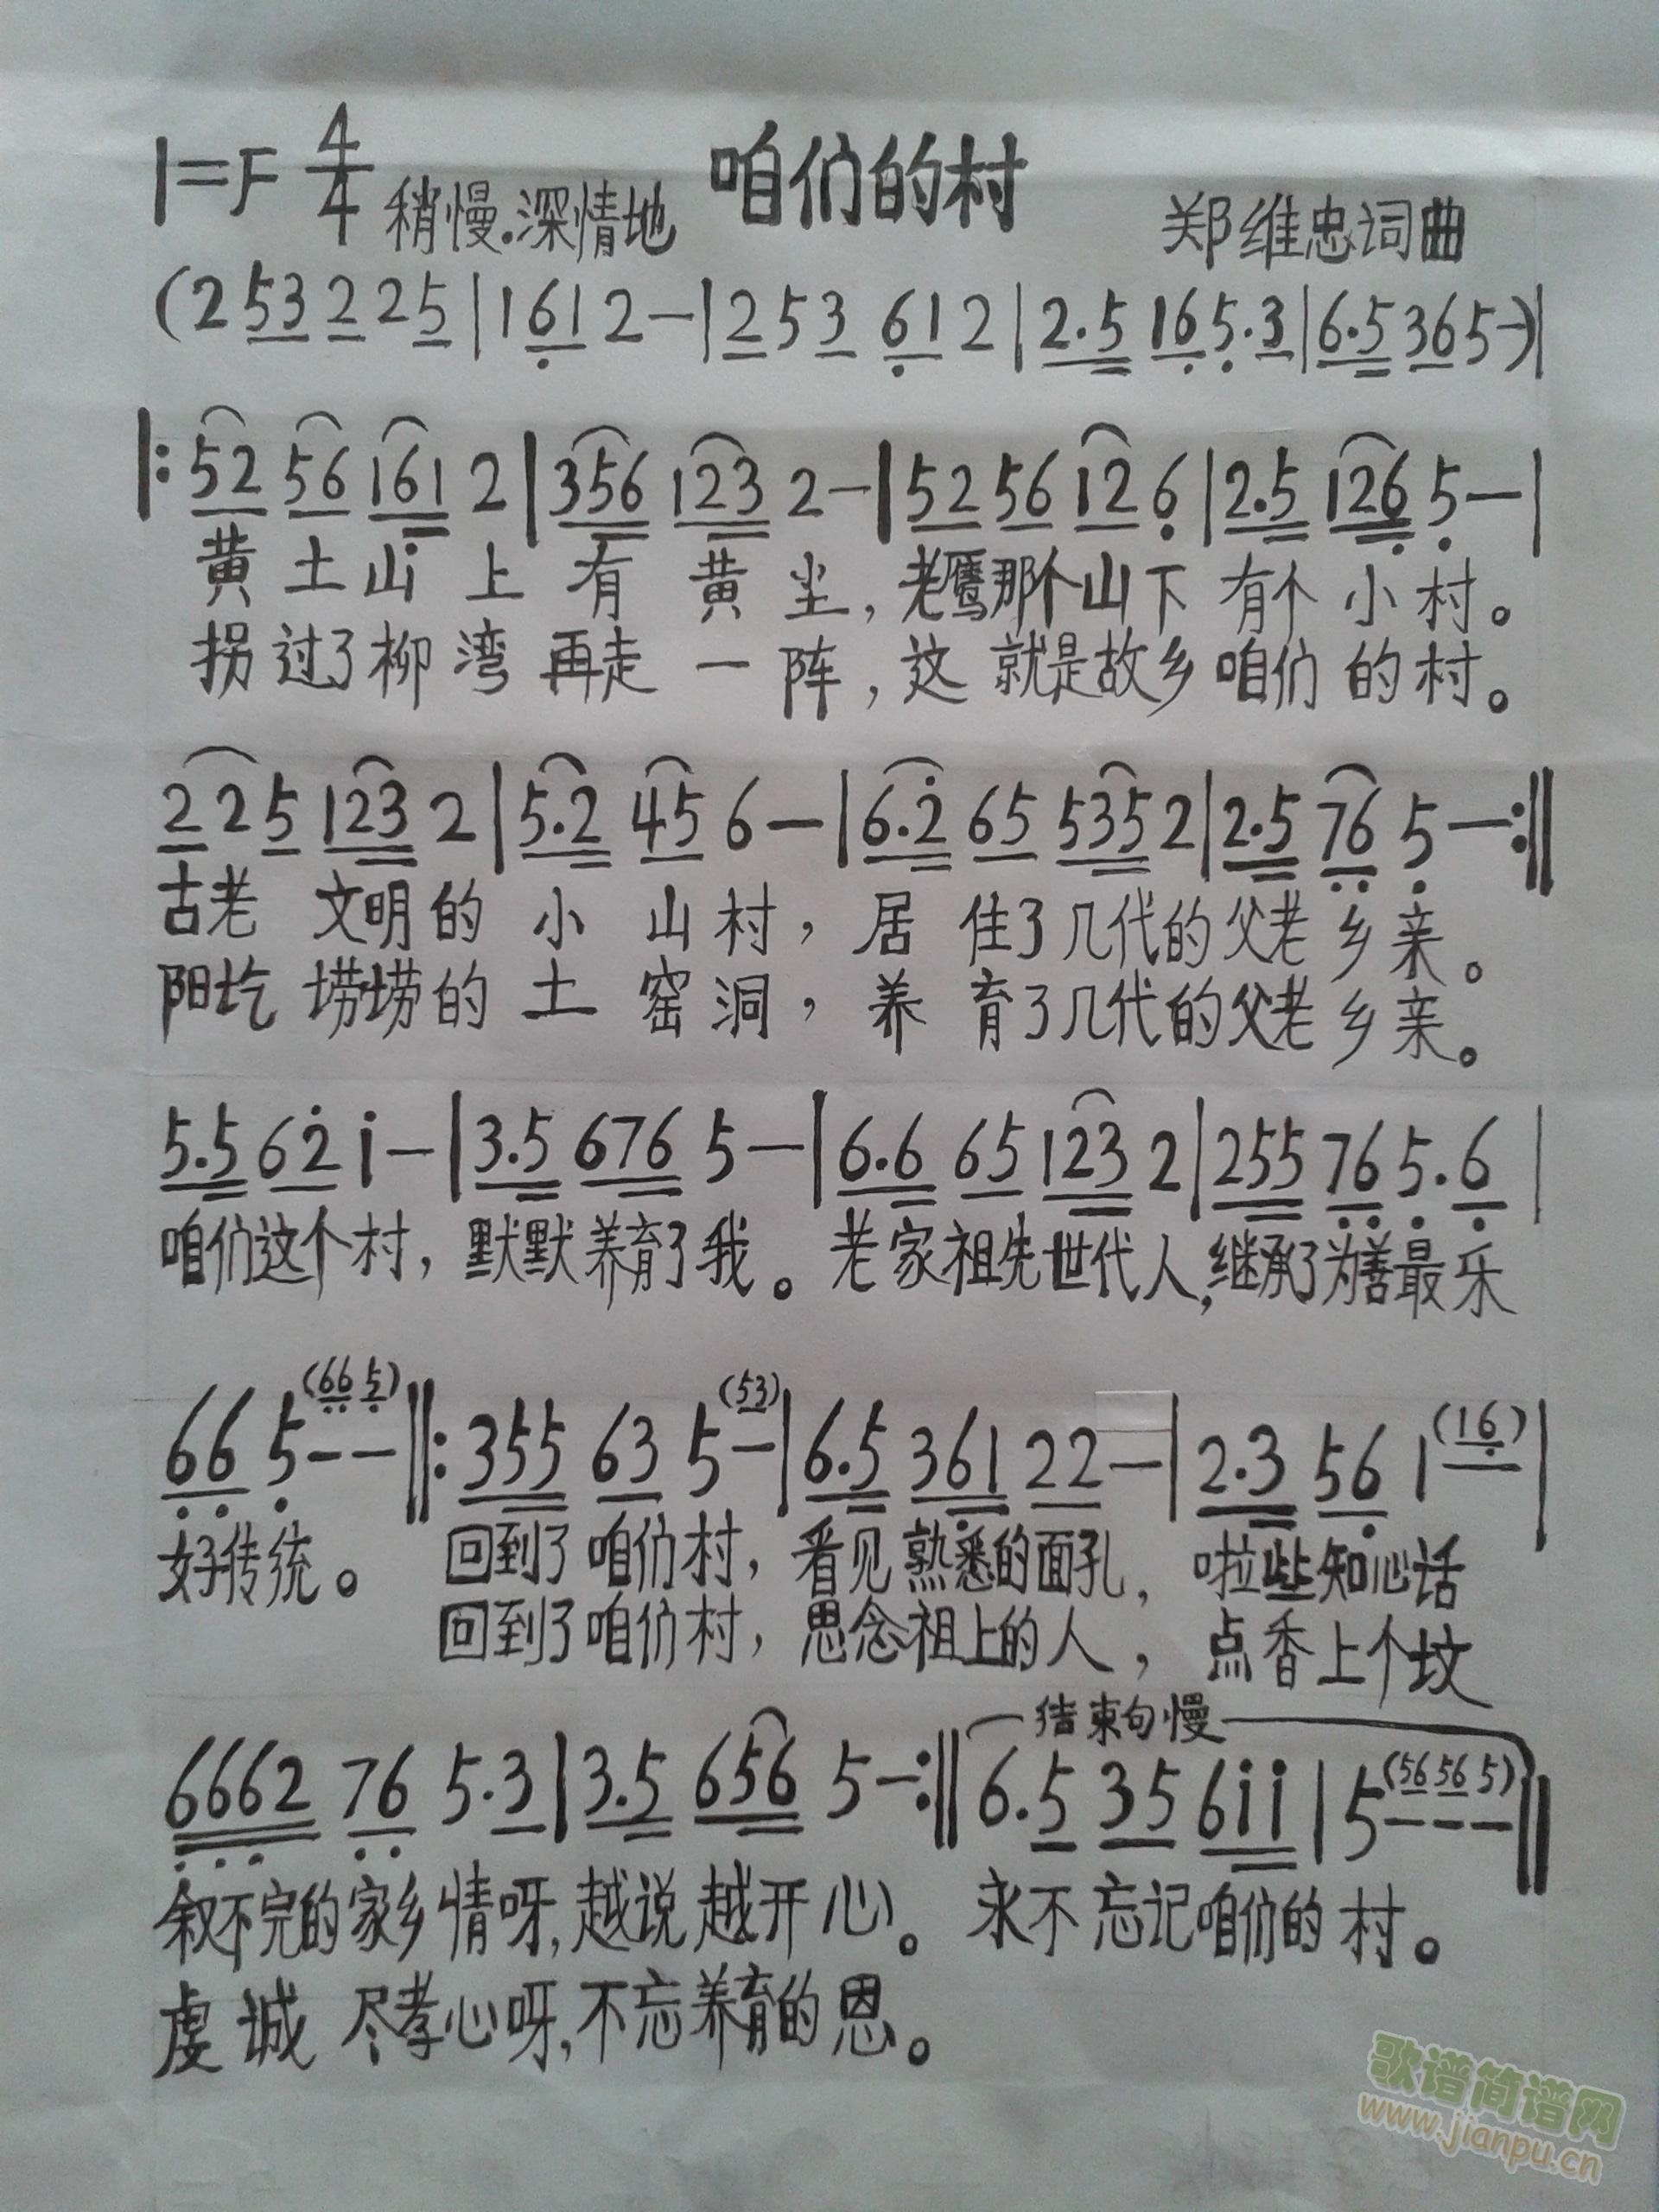 1=F 4/4 稍慢.深情地 咱们的村 郑维忠词曲
(2 53 2 25 | 1 61 2 — | 2 5 3 61 2 | 2.5 16 5.3 | 6.5 36 5 —) |
|: 52 56 161 2 | 356 123 2 — | 52 56 12 6 | 2.5 126 5 — |
黄土山上有黄尘,老鹰那个山下有个小村。
拐过了柳湾再走一阵,这就是故乡咱们的村。
2 2 5 123 2 | 5.2 45 6 — | 6.2 65 535 2 | 2.5 76 5 — :||
古老文明的小山村,居住了几代的父老乡亲。
阳圪塄塄的土窑洞,养育了几代的父老乡亲。
5.5 62 1 — | 3.5 676 5 — | 6.6 65 123 2 | 255 76 5.6 |
咱们这个村,默默养育了我。老家祖先世代人,继承了为善最乐
66 5 — — (66 5) ||: 355 63 5 — (53) | 6.5 361 22 — | 2.3 56 1 — (16) |
好传统。 回到了咱们村,看见熟悉的面孔,啦些知心话
回到了咱们村,思念祖上的人,点香上个坟
结束句慢
6662 76 5.3 | 3.5 656 5 — :|| 6.5 35 611 | 5 — — — (56 56 5) ||
叙不完的家乡情呀,越说越开心。永不忘记咱们的村。
虔诚尽孝心呀,不忘养育的恩。
歌谱简谱网
www.jianpu.cn